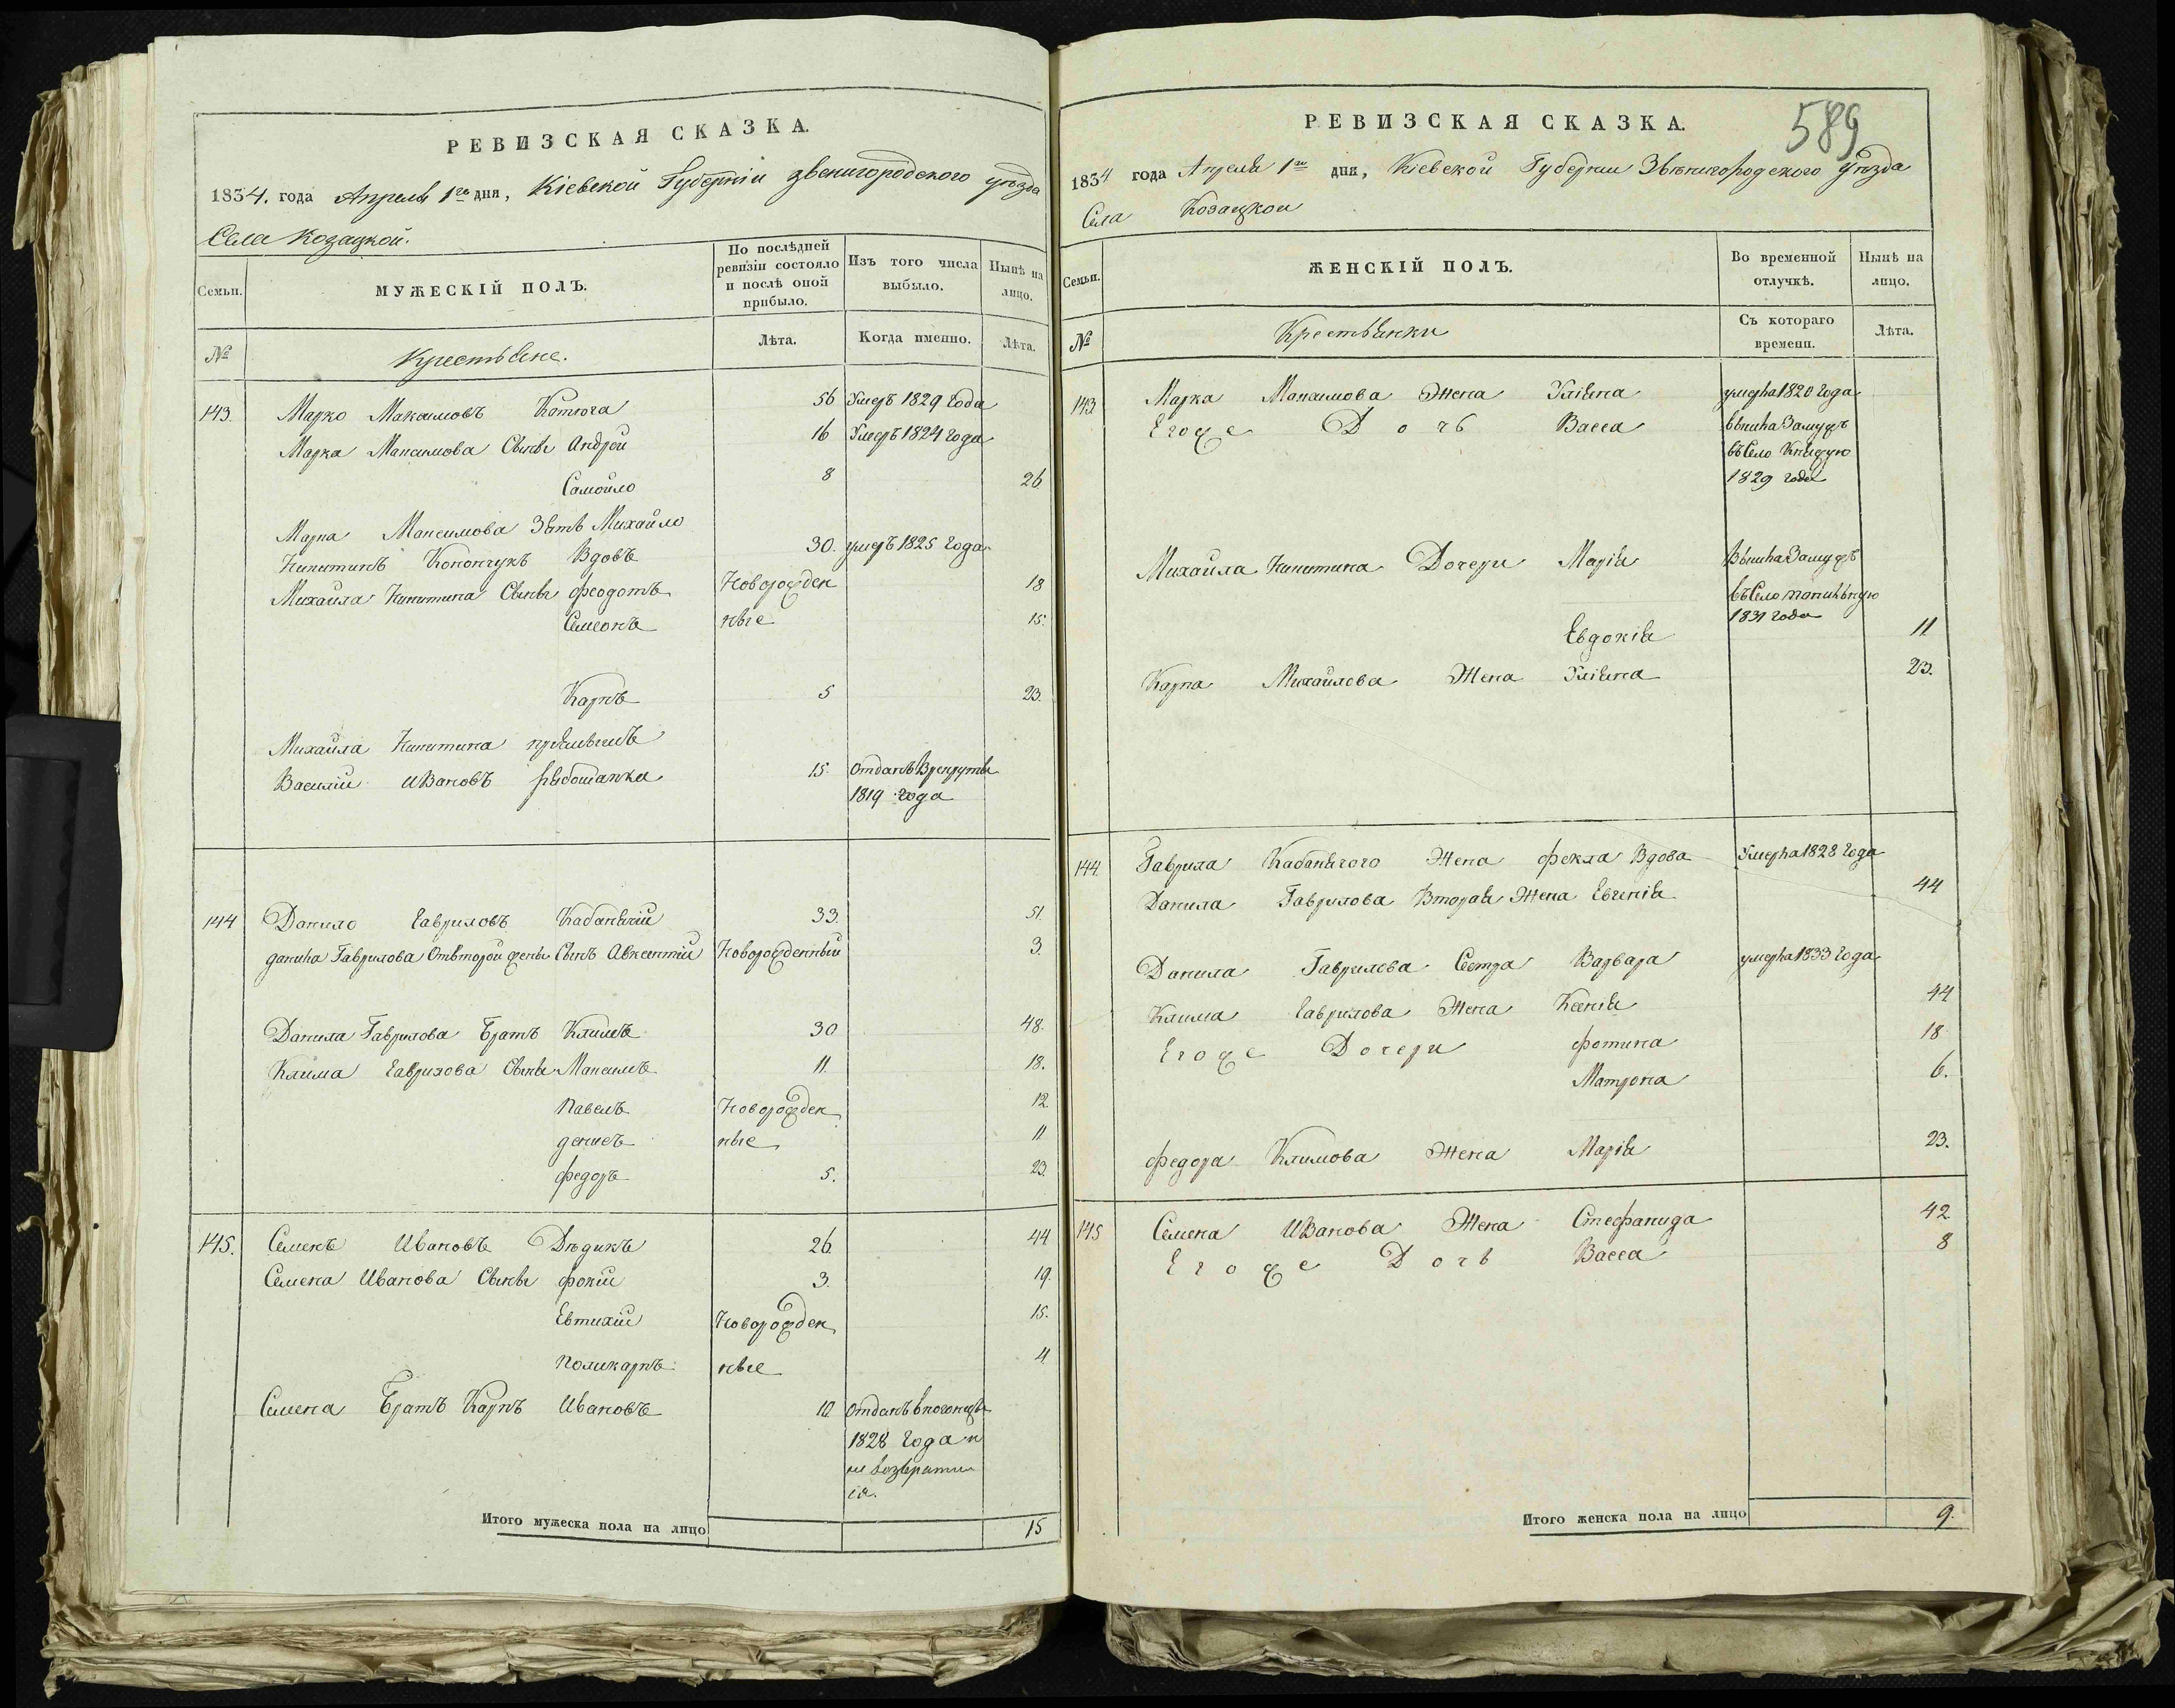 РЕВИЗСКАЯ СКАЗКА.
1834. года Апреля 1го дня, Кіевской Губерніи звенигородского уезда
Села Козацкой.
Семьи.
МУЖЕСКІЙ ПОЛЪ.
По послѣдней ревизіи состояло и послѣ оной прибыло.
Изъ того числа выбыло.
Нынѣ на лицо.
№
Крестьяне.
Лѣта.
Когда именно.
Лѣта.
143. Марко Максимовъ 56 Умеръ 1829 Года
Марка Максимова Сыны Андрей 16 Умеръ 1824 Года
Самойло 8 26
Марка Максимова Зять Михайло
Никитинъ Вдовъ 30. умеръ 1825 Года
Михайла Никитина Сыны Феодотъ Новорожден 18
Семенъ ные 15.
Карпъ 5 23.
Михайла Никитина
Василій Ивановъ 15. Отданъ Врекруты
1819 года
144 Данило Гавриловъ 33. 51.
данила Гаврилова Отвторой жены Сынъ Авксентій Новорожденный 3.
Данила Гаврилова Братъ Климъ 30 48.
Клима Гаврилова Сыны Максимъ 11. 18.
Павелъ Новорожден 12
денисъ ные 11
Федоръ 5. 23.
145. Семенъ Ивановъ Дѣдикъ 26. 44
Семена Иванова Сыны Фокій 3. 19.
Евтихій Новорожден 15.
Поликарпъ ные 4
Семена Братъ Карпъ Ивановъ Отданъ
1828 Года и
не возврати
ся.
Итого мужеска пола на лицо 15
РЕВИЗСКАЯ СКАЗКА.
589
1834 года Апреля 1го дня, Кіевской Губерніи Звѣнигородского уѣзда
Села Козацкой
Семьи.
ЖЕНСКІЙ ПОЛЪ.
Во временной отлучкѣ.
Нынѣ на лицо.
№
Крестьянки
Съ котораго времени.
Лѣта.
143 Марка Максимова Жена Уліяна умерла 1820 Года
Егоже Дочь Васса вышла Замужъ
въ Село
1829 года
Михайла Никитина Дочери Марія Вышла Замужъ
въ Село
1831 года
Евдокія 11
Карпа Михайлова Жена Уліяна 23.
144. Гаврила Жена Фекла Вдова Умерла 1828 Года
Данила Гаврилова Вторая Жена Евгенія 44
Данила Гаврилова Сестра Варвара умерла 1833 Года
Клима Гаврилова Жена Ксенія 44
Егоже Дочери Фотина 18
Матрона 6.
Федора Климова Жена Марія 23.
145 Семена Иванова Жена Стефанида 42
Егоже Дочь Васса 8
Итого женска пола на лицо 9.